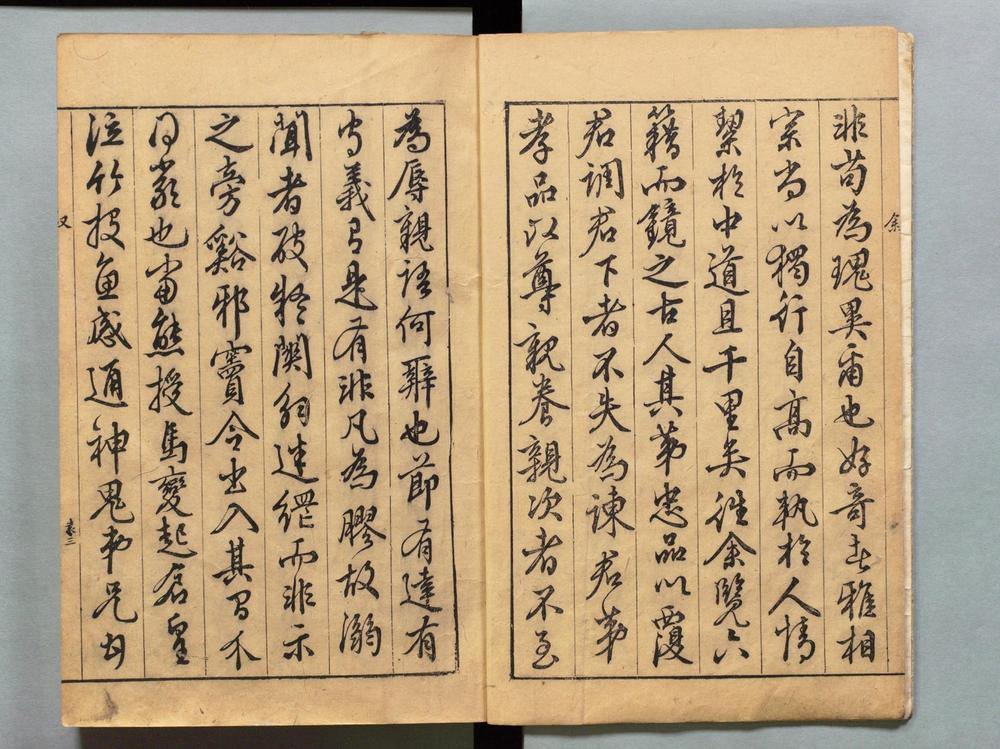 非苟為瑰異爾也好奇者雅相
崇尚以獨行自高而執於人情
絜於中道且千里矣往余覽六
籍而鏡之古人其第忠品以覆
君調君下者不失為諫君第
孝品以尊親養親次者不至
為辱親語何辭也節有達有
守義有是有非凡為膠故溺
聞者破拘關解迷纙而非示
之旁谿邪竇令出入其間不
同歲也當熊授馬變起倉皇
泣竹投魚感通神鬼弟兄母
余
叙
卷三